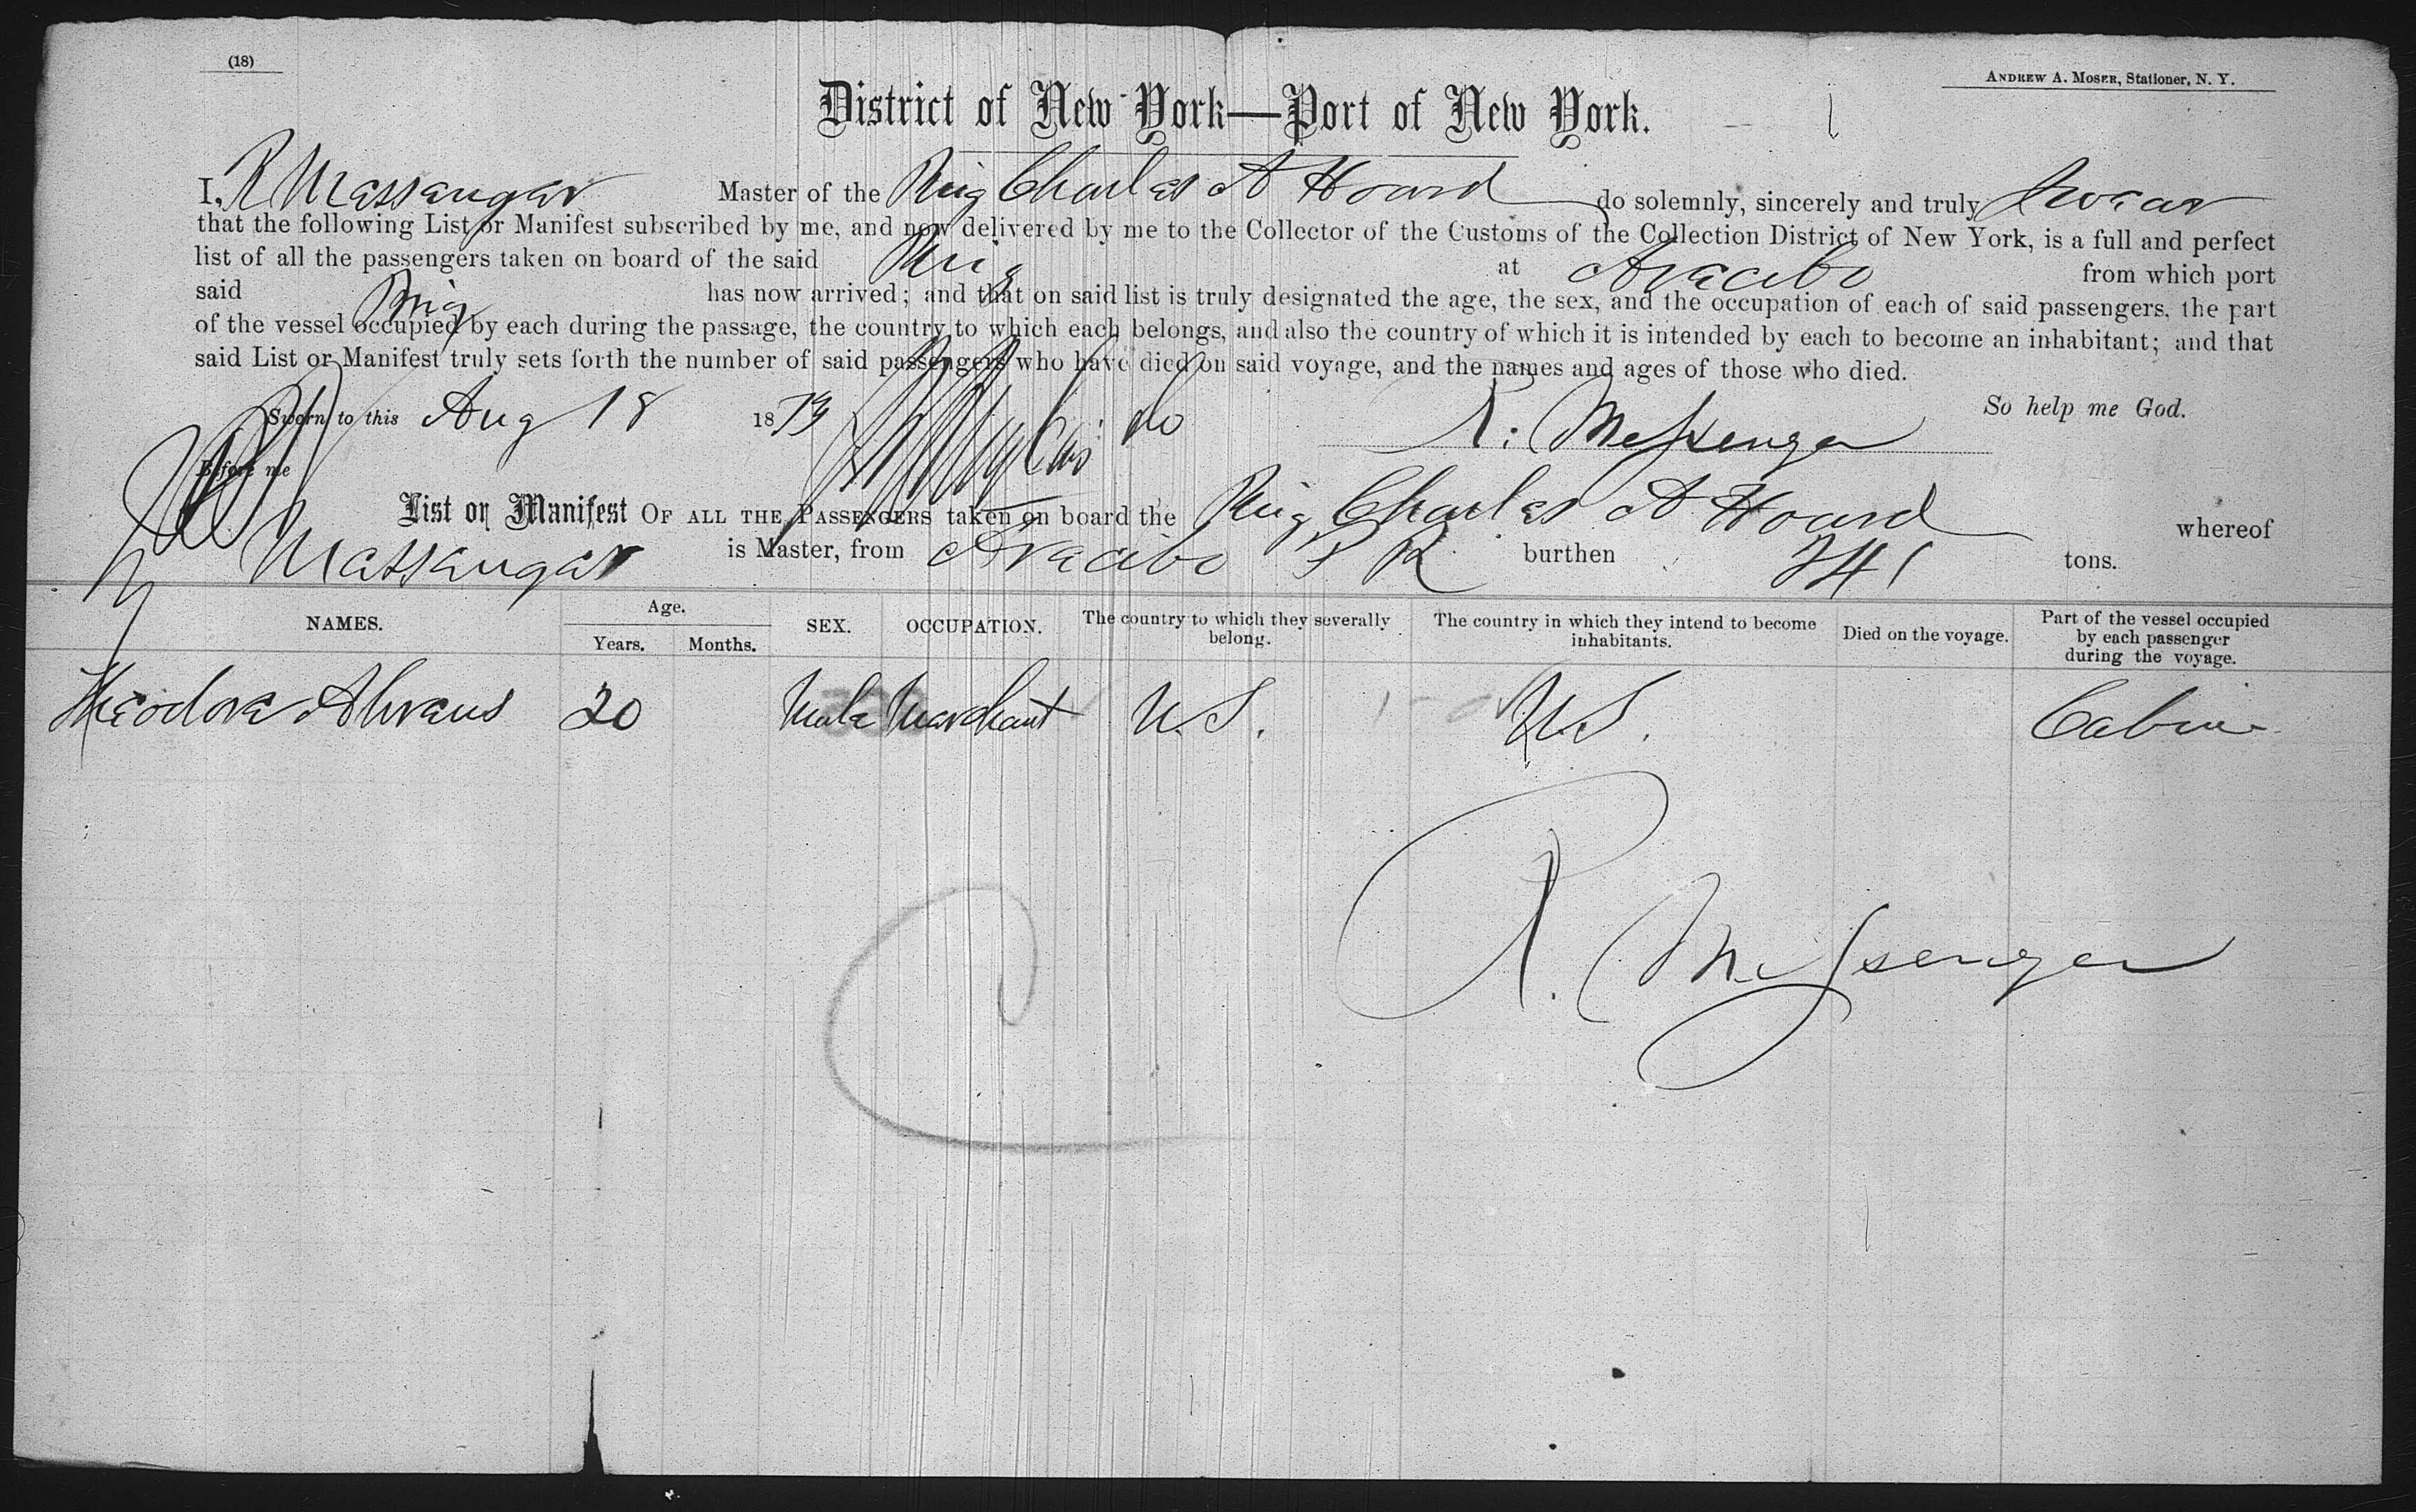 (18)
ANDREW A. MOSER, Stationer, N. Y.
District of New York—Port of New York.
I, R Messenger Master of the Brig Charles A Hoard do solemnly, sincerely and truly swear
that the following List or Manifest subscribed by me, and now delivered by me to the Collector of the Customs of the Collection District of New York, is a full and perfect
list of all the passengers taken on board of the said Brig at Arecibo from which port
said Brig has now arrived; and that on said list is truly designated the age, the sex, and the occupation of each of said passengers, the part
of the vessel occupied by each during the passage, the country to which each belongs, and also the country of which it is intended by each to become an inhabitant; and that
said List or Manifest truly sets forth the number of said passengers who have died on said voyage, and the names and ages of those who died.
So help me God.
Sworn to this Aug 18 1873 R. Messenger
Before me
List or Manifest OF ALL THE PASSENGERS taken on board the Brig Charles A Hoard whereof
Messenger is Master, from Arecibo P R burthen 341 tons.
NAMES. Age. Years. Months. SEX. OCCUPATION. The country to which they severally belong. The country in which they intend to become inhabitants. Died on the voyage. Part of the vessel occupied by each passenger during the voyage.
Theodore Ahrens 20 Male Merchant U.S. U.S. Cabin
R. Messenger